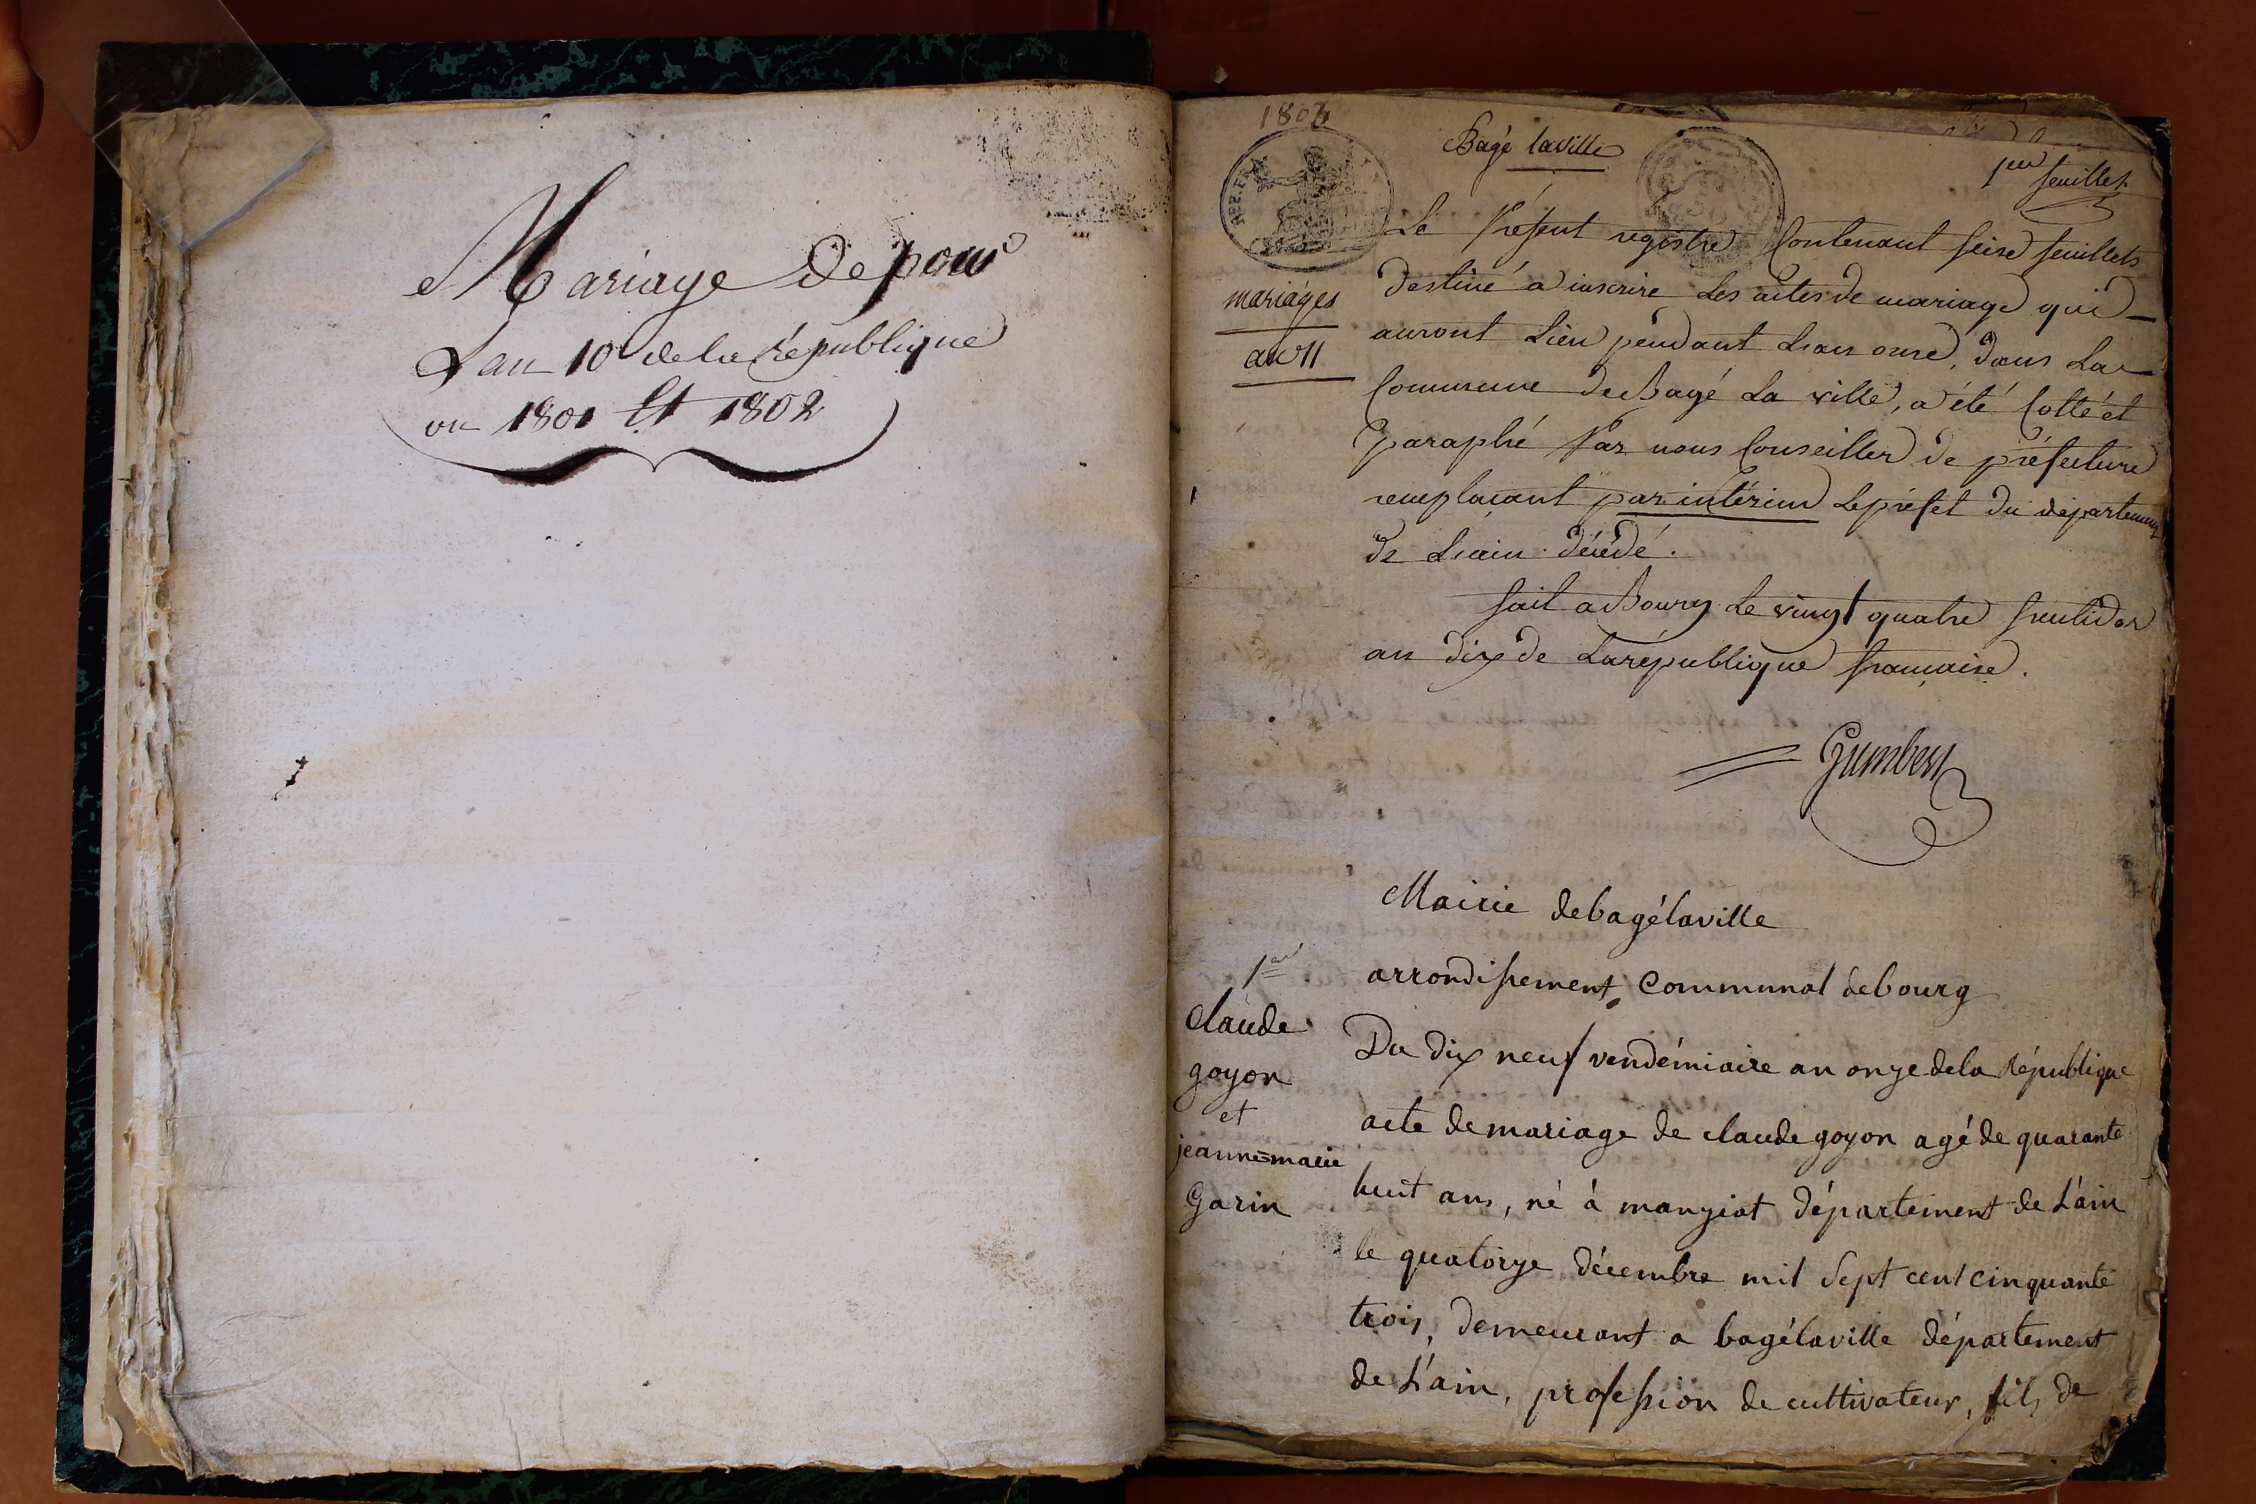 Mariage de pour
L'an 10e de la république
ou 1801 Et 1802
1802
Bagé laville
1er feuillet
REP. FRA
mariages
an 11
Le Présent registre Contenant seise feuillets
destiné a inscrire Les actes de mariage qui
auront Lieu pendant L'an onse, dans La
Commune de Bagé La ville, a été Cotté et
paraphé Par nous Conseiller de préfecture
remplaçant par intérim Le préfet du département
de L'ain décédé.
fait a Bourg Le vingt quatre fructidor
an dix de La république française.
Mairie de bagélaville
arrondissement communal de bourg
1er
Claude
goyon
et
jeanne=marie
Garin
Du dix neuf vendémiaire an onze de la République
acte de mariage de claude goyon agé de quarante
huit ans, né à mangiat département de L'ain
le quatorze décembre mil sept cent cinquante
trois, demeurant a bagélaville département
de L'ain, profession de cultivateur, fils de